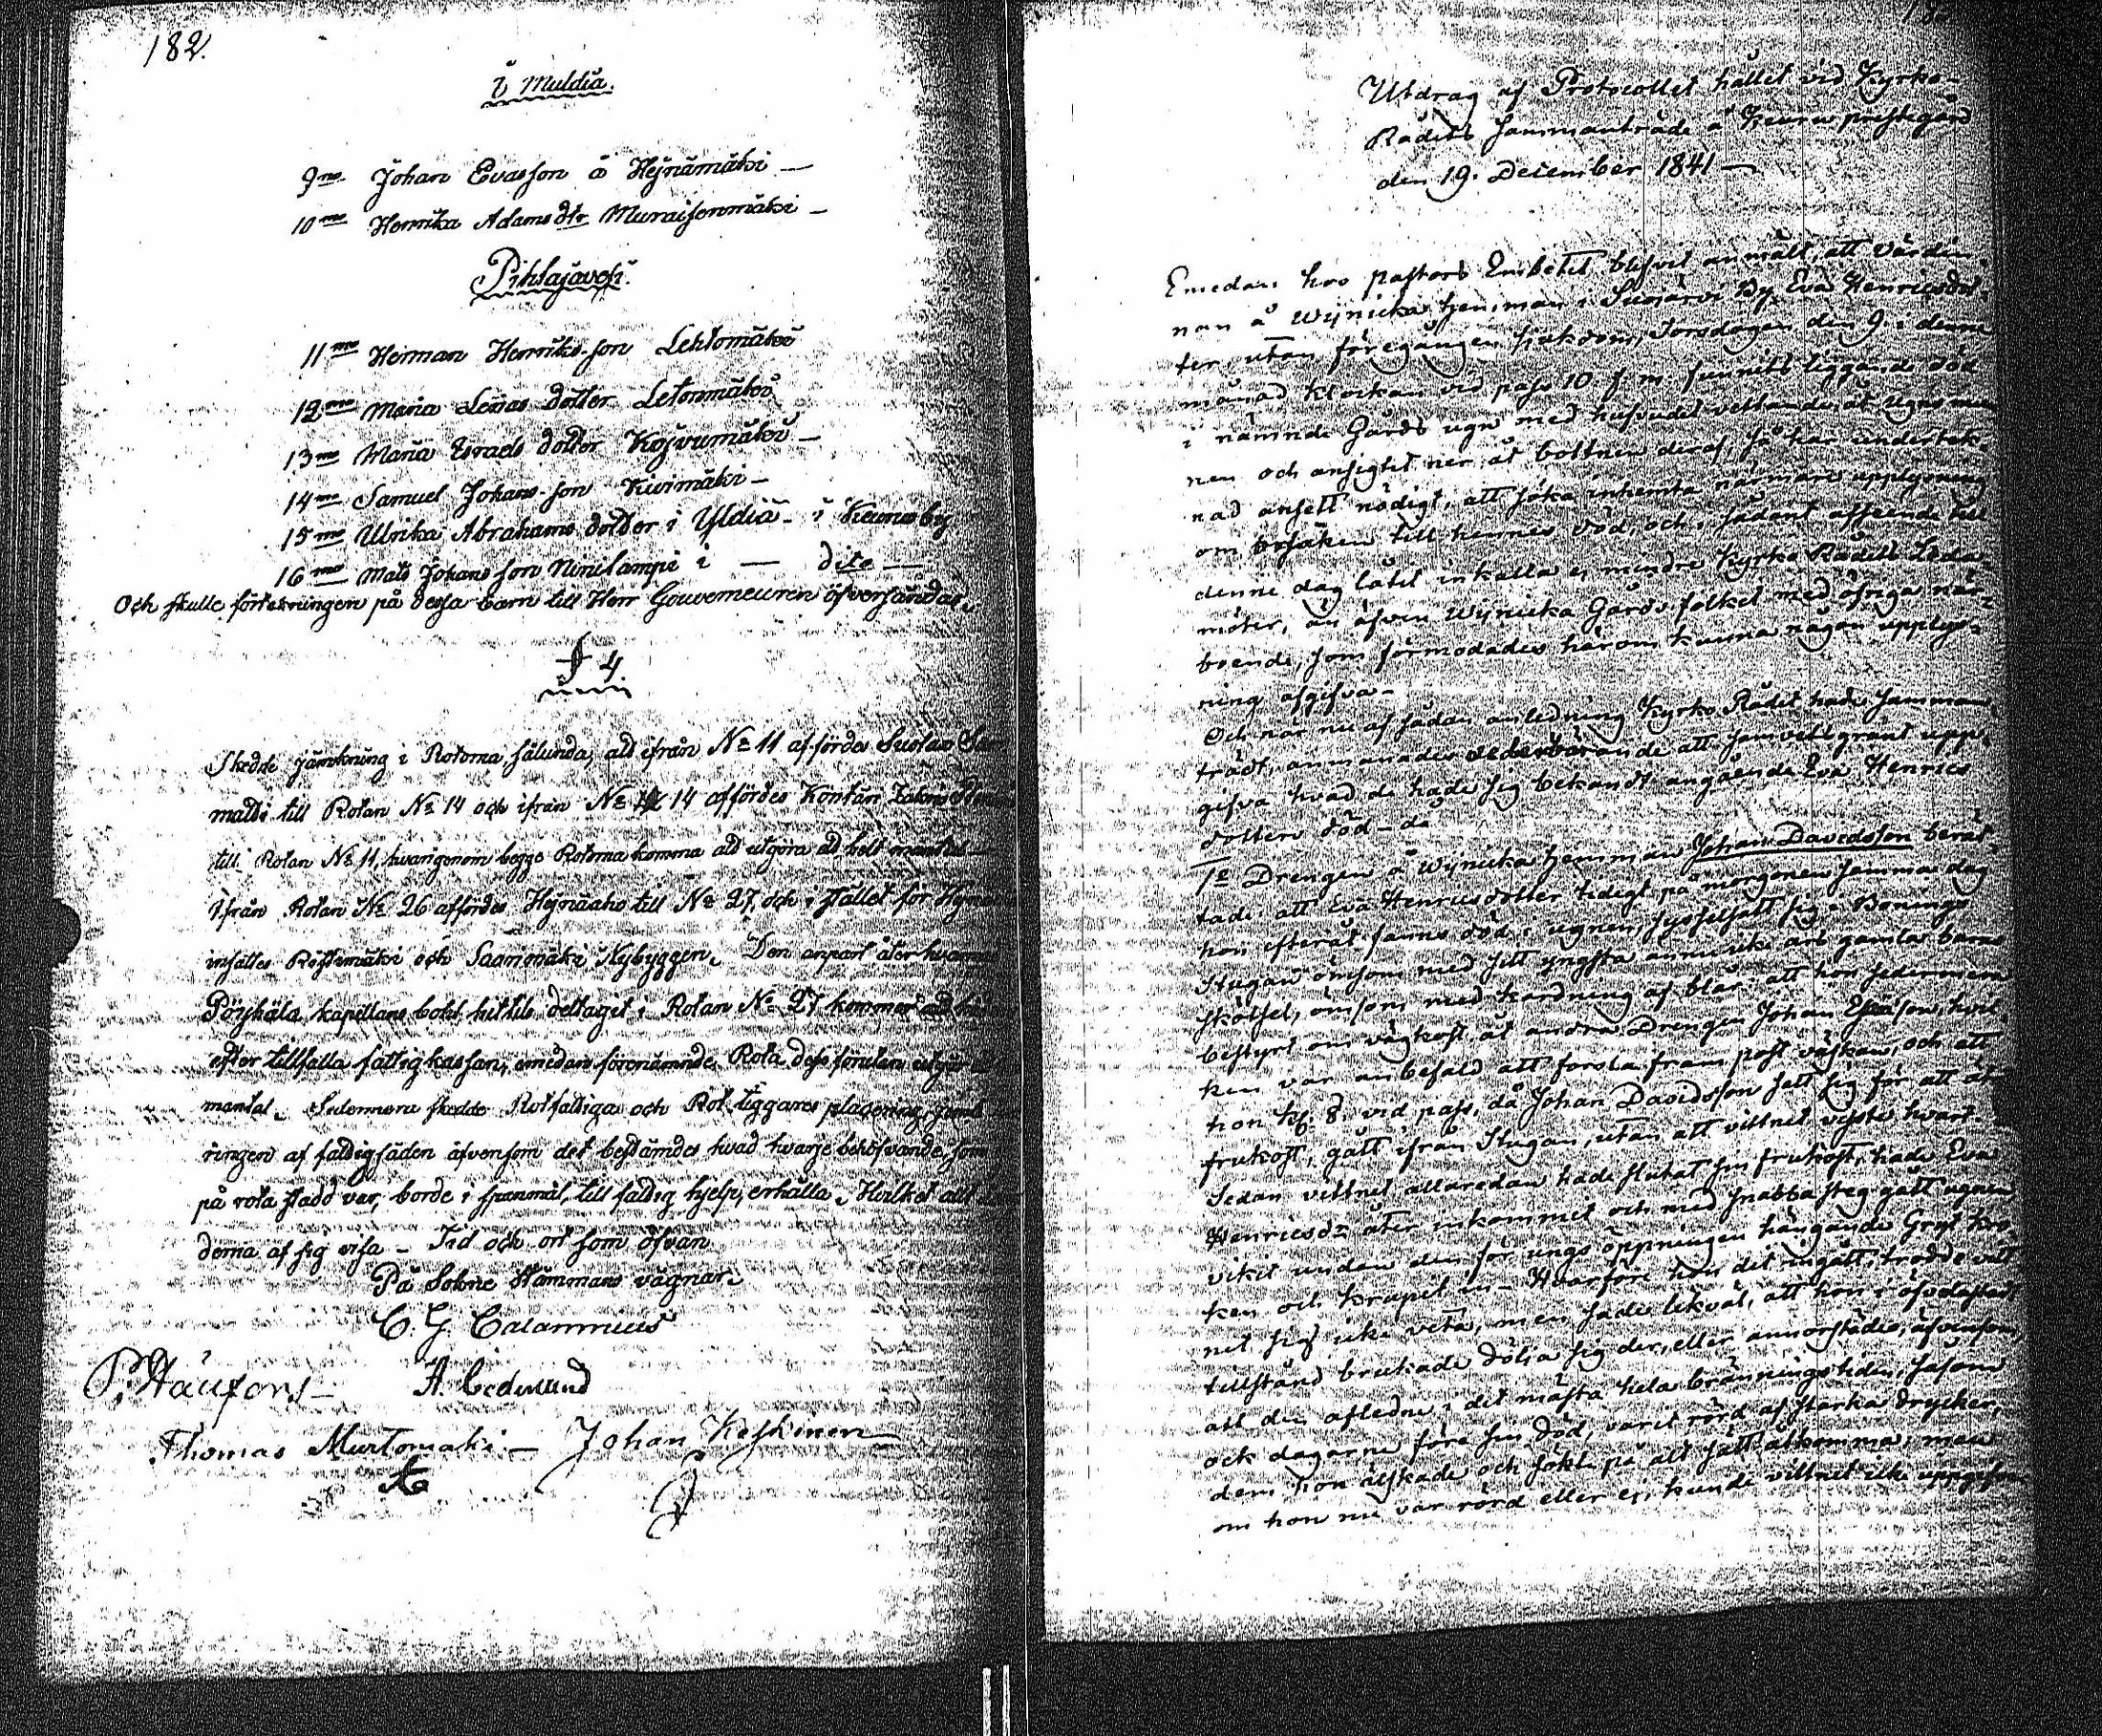 182.
i Muldia.
9no Johan Evasson å Hejnämäki —
10mo Henrika Adamsdtr Muraisenmäki —
Pihlajavesi.
11mo Herman Henriks-son Lehtomäki
12mo Maria Lenas dotter Letonmäki
13mo Maria Esraels dotter Kojvumäki —
14mo Samuel Johans-son Kivimäki —
15mo Ulrika Abrahams dotter i Yldiä - i Keuru by
16mo Mats Johans son Ninilampi i — dito —
Och skulle förtekningen på dessa barn till Herr Gouverneuren öfversändas.
§ 4
Skedde jämkning i Rotorna sålunda, att ifrån No 11 af-fördes
till Rotan No 14 och ifrån No 14 affördes
till Rotan No 11, hvarigenom begge Rotorna komma att utgöra
Ifrån Rotan No 26 affördes Hejnäaho till No 27, och i stället för
insattes Ristimäki och Saarimäki Nybyggen. Den anpart åter hvarmed
Pöyhälä kapellans bohl hittils deltagit i Rotan No 27 kommer
efter tillfalla fattigkassan, emedan förenämnde Rota dess förutan utgör
mantal. Sedermera skedde Rotfattiga och Rot tiggares placering,
ringen af fattigsäden äfvensom det bestämdes hvad hvarje behöfvande, som
på rota stadd var, borde i spanmål, till fattig hjelp, erhålla. Hvilket allt
derna af sig visa — Tid och ort som ofvan
På Sokne Stämmans vägnar.
C. G. Calamnius
P. Staufors — A. Cedmund
Thomas Murtomäki — Johan Keskinen
Utdrag af Protocollet hållet vid Kyrko-
Rådets sammanträde å Keuru prestegård
den 19. December 1841 —
Emedan hos Pastors Embetet blifvit anmält, att värdin-
nan å Wijnicka hemman i Suojärvi By, Eva Henricsdot-
ter, utan föregången sjukdom, Torsdagen den 9. i denne
månad klockan vid pass 10 f. m. funnits liggande död
i nämnde Gårds ugn med hufvudet vettande åt ugns mun
nen och ansigtet ner åt bottnen deraf, så har underteck-
nad ansett nödigt, att söka inhemta närmare upplysning
om orsaken till hennes död, och i sådant afseende till
denne dag låtit inkalla ej mindre Kyrko Rådets Leda-
möter, än äfven Wijnicka Gårds folket med öfriga när-
boende, som förmodades härom kunna någon upplys-
ning afgifva —
Och när nu af sådan anledning Kyrko Rådet hade samman-
trädt, anmanades vederbörande att samvetsgrant upp-
gifva hvad de hade sig bekandt angående Eva Henrics
dotters död — då
1o Drengen å Wijnicka hemman Johan Davidsson berät-
tade: att Eva Henricsdotter tidigt på morgonen samma dag
hon efteråt fanns död i ugnen, sysselsatt sig i Bonings
stugan ömsom med sitt yngsta ännu icke års gamla barns
skötsel, ömsom med kardning af blår: att hon sedermera
bestyrt om vägkost åt andra Drengen Johan Esaison, hvil-
ken var anbefald att forsla fram post väskan, och att
hon kl. 8. vid pass, då Johan Davidsson satt sig för att äta
frukost, gått ifrån Stugan, utan att vittnet visste hvart.
Sedan vittnet allaredan hade slutat sin frukost, hade Eva
Henricsdr åter inkommit och med snabba steg gått ugnen
vikit undan den för ungs öppningen hängande Gryt kro-
ken och krupit in — Hvarföre hon det ingått, trodde vitt
net sig icke veta, men sade likväl, att hon i
tillstånd brukade dölja sig der, eller annorstädes, äfvensom,
att den aflidne i det mästa hela bränningstiden, såsom
ock dagarne före sin död, varit rörd af starka drycker,
dem hon älskade och sökte på alt sätt åtkomma; men
om hon nu var rörd eller ej, kunde vittnet icke uppgifva